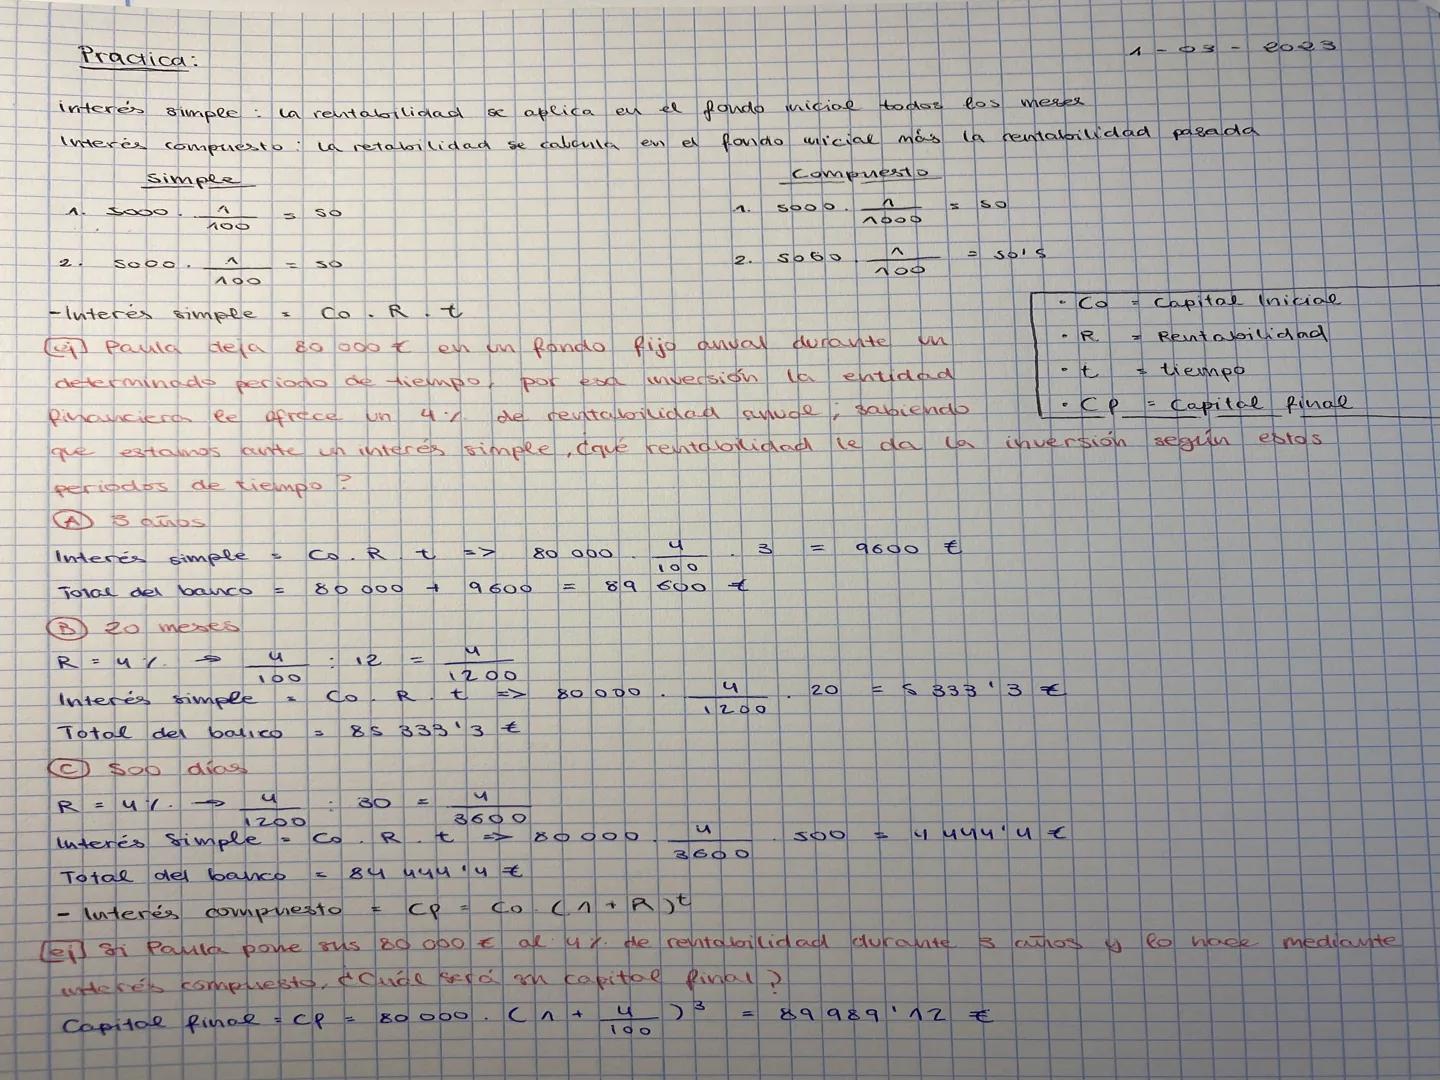 Practica: 1 - 03 - 2023
interés simple : la rentabilidad se aplica en el fondo inicial todos los meses
Interés compuesto : la retabilidad se calcula en el fondo inicial más la rentabilidad pasada
Simple Compuesto
1. 5000 . 1/100 = 50 1. 5000 . 1/1000 = 50
2. 5000 . 1/100 = 50 2. 5050 . 1/100 = 50's
- Interés simple = Co . R . t
· Co = Capital Inicial
· R = Rentabilidad
· t = tiempo
· CF = Capital final
ej) Paula deja 80 000 € en un fondo fijo anual durante un
determinado periodo de tiempo, por esa inversión la entidad
financiera le ofrece un 4 % de rentabilidad anual; sabiendo
que estamos ante un interés simple, ¿qué rentabilidad le da la inversión según estos
periodos de tiempo?
A) 3 años
Interés simple = Co . R . t => 80 000 . 4/100 . 3 = 9600 €
Total del banco = 80 000 + 9600 = 89 600 €
B) 20 meses
R = 4 % → 4/100 : 12 = 4/1200
Interés simple = Co . R . t => 80 000 . 4/1200 . 20 = 5 333'3 €
Total del banco = 85 333'3 €
C) 500 días
R = 4 % → 4/1200 : 30 = 4/3600
Interés simple = Co . R . t => 80 000 . 4/3600 . 500 = 4 444'4 €
Total del banco = 84 444'4 €
- Interés compuesto = CF = Co . (1 + R)^t
ej) Si Paula pone sus 80 000 € al 4 % de rentabilidad durante 3 años y lo hace mediante
interés compuesto, ¿Cuál será su capital final?
Capital final = CF = 80 000 . (1 + 4/100)^3 = 89 989'12 €